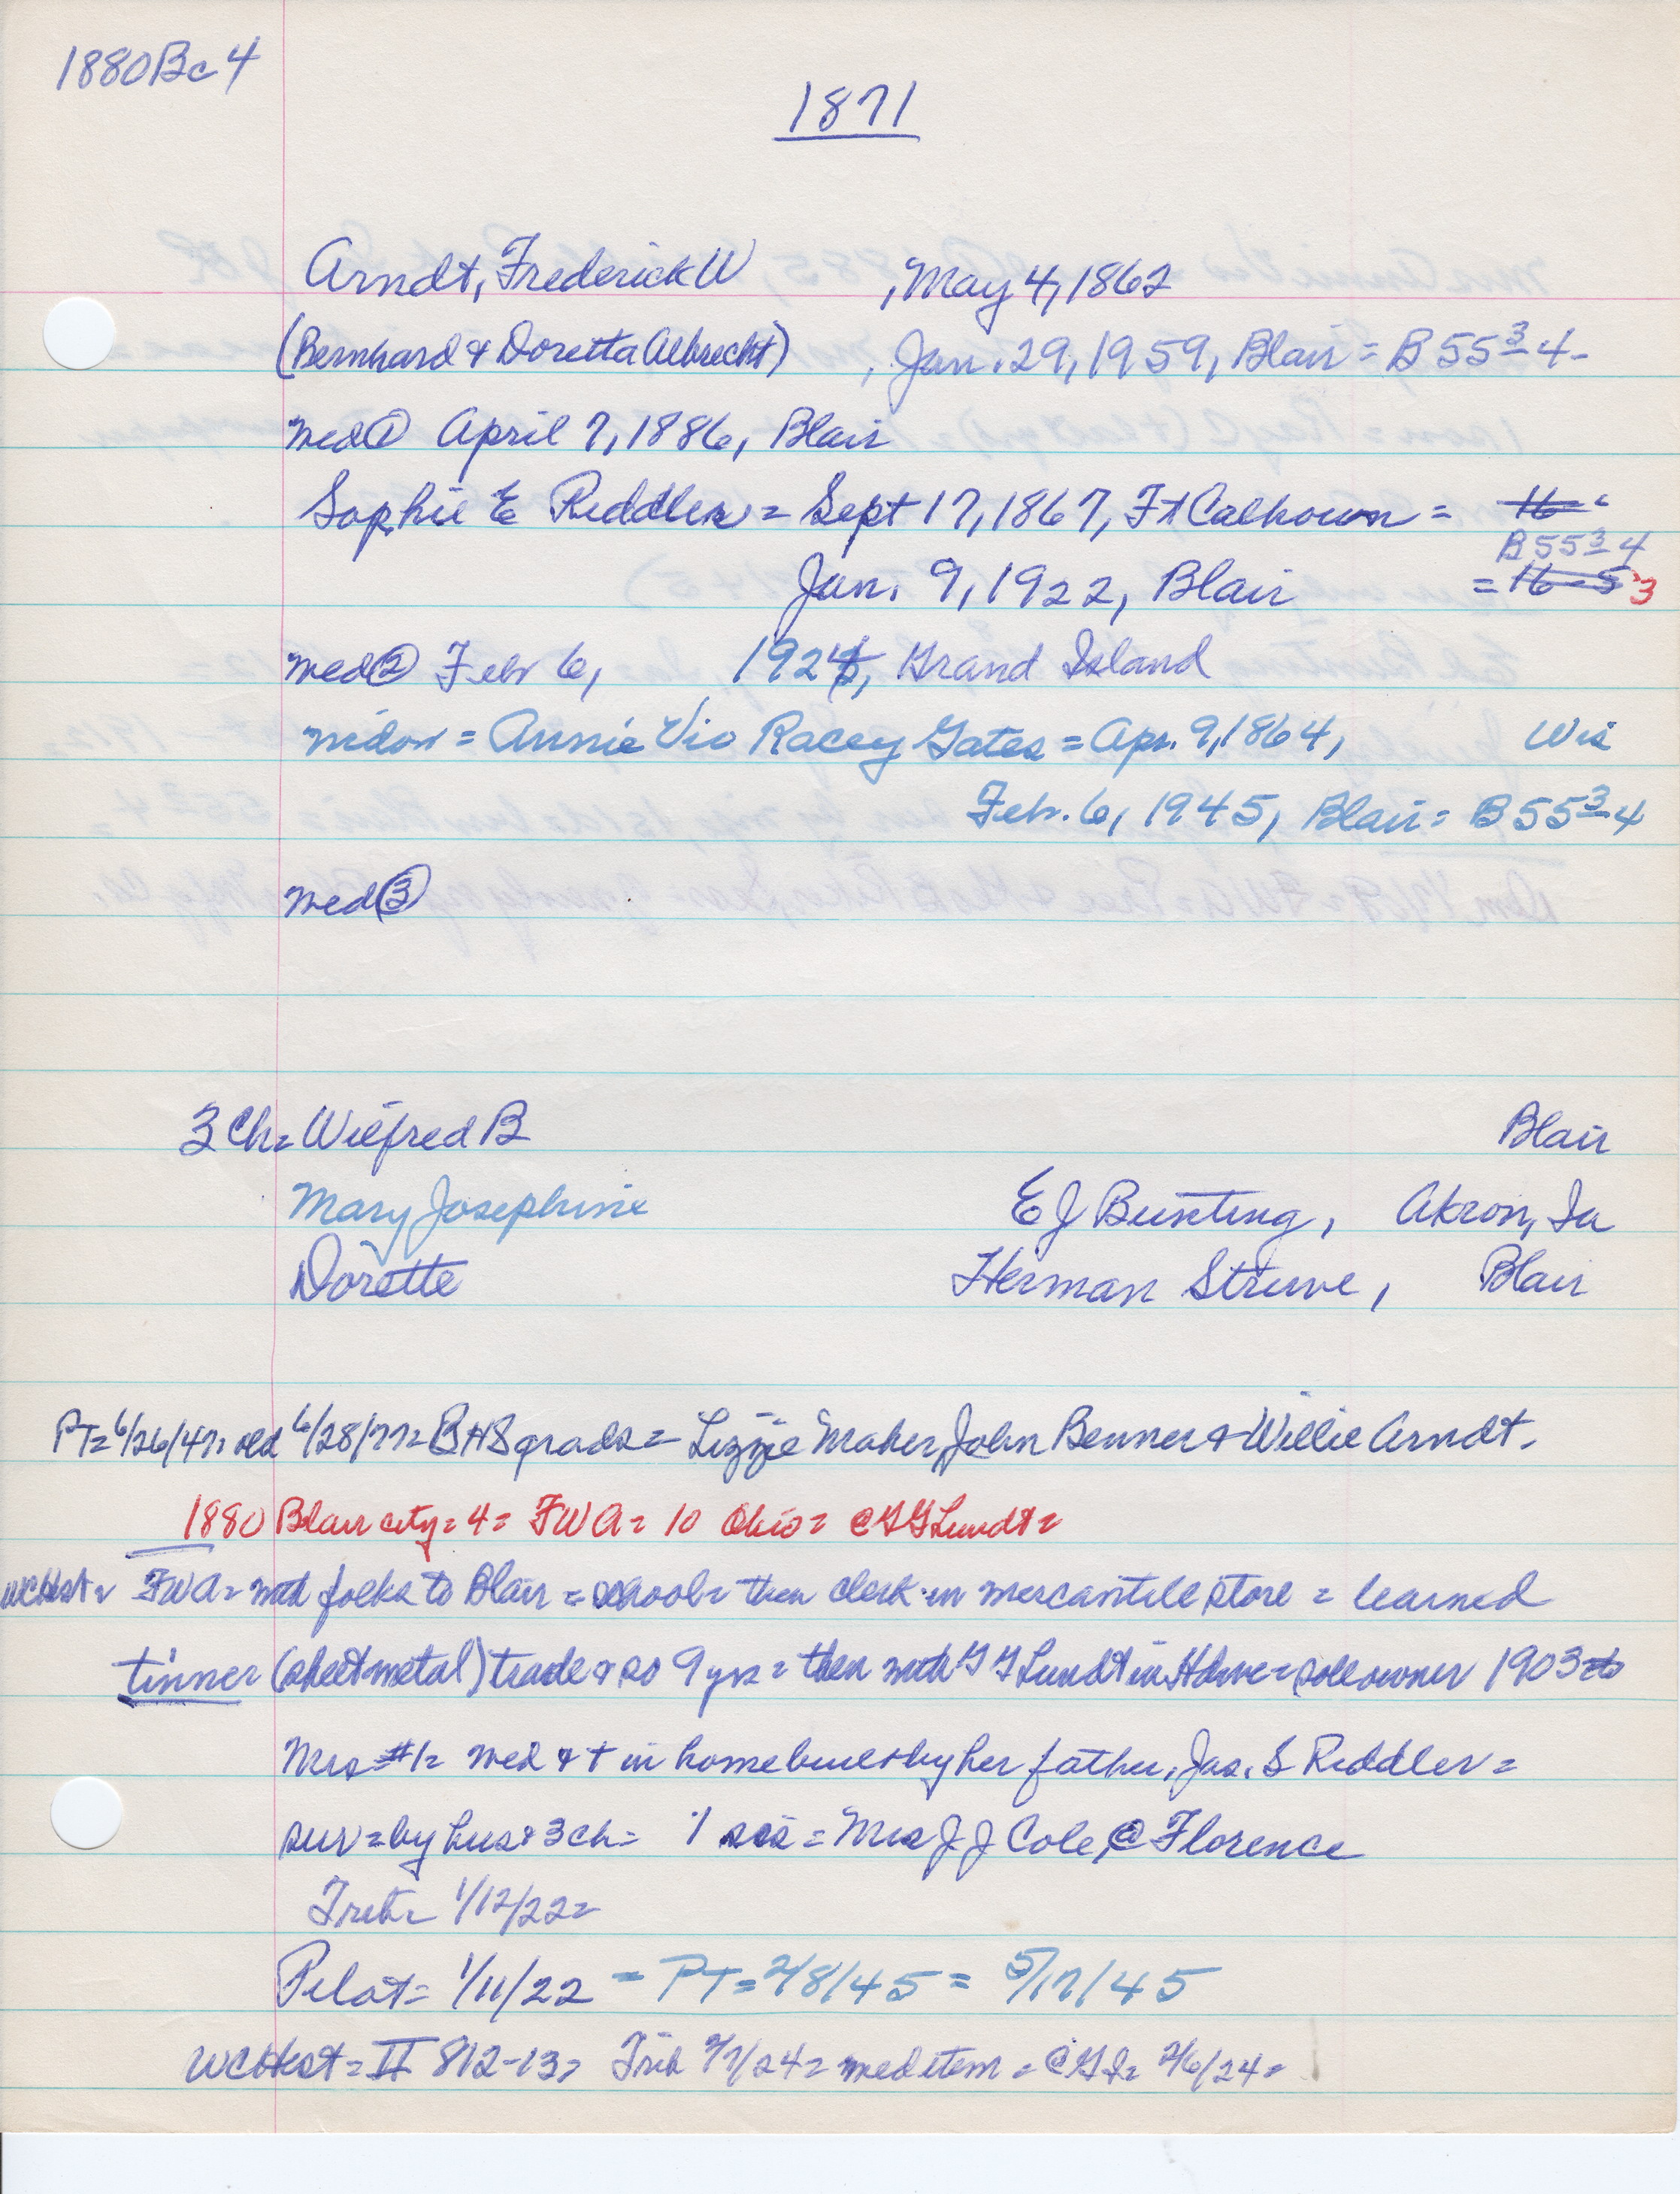 1880Bc4
1871
Arndt, Frederick W , May 4, 1862
(Bernhard & Doretta Albrecht) , Jan. 29, 1959, Blair = B 55 3 4-
med① April 7, 1886, Blair
Sophie E Riddler = Sept 17, 1867, Ft Calhoun = 16
B 55 3 4
Jan. 9, 1922, Blair = 16-5 3
med② Feb 6, 1924, Grand Island
widow = Annie Vio Racey Gates = Apr. 9, 1864, Wis
Feb. 6, 1945, Blair = B 55 3 4
med③
3 Ch = Wilfred B Blair
Mary Josephine E J Bunting, Akron, Ia
Dorette Herman Struve, Blair
PT = 6/26/47 = old 6/28/77 = BHS grads = Lizzie Maher, John Benner & Willie Arndt.
1880 Blair city = 4 = FWA = 10 Ohio = @ G G Lundt =
WCHist = FWA = with folks to Blair = school = then clerk in mercantile store = learned
tinner (sheet metal) trade & so 9 yrs = then with G G Lundt in Hdwe = sole owner 1903 to
Mrs #1 = med & + in home built by her father, Jas. S Riddler =
surv = by hus & 3 ch = 1 sis = Mrs J J Cole, @ Florence
Trib = 1/12/22 =
Pilot = 1/11/22 = PT = 2/8/45 = 5/17/45
WCHist = II 812-13 = Trib 2/7/24 = med item = @ G I = 2/6/24 =